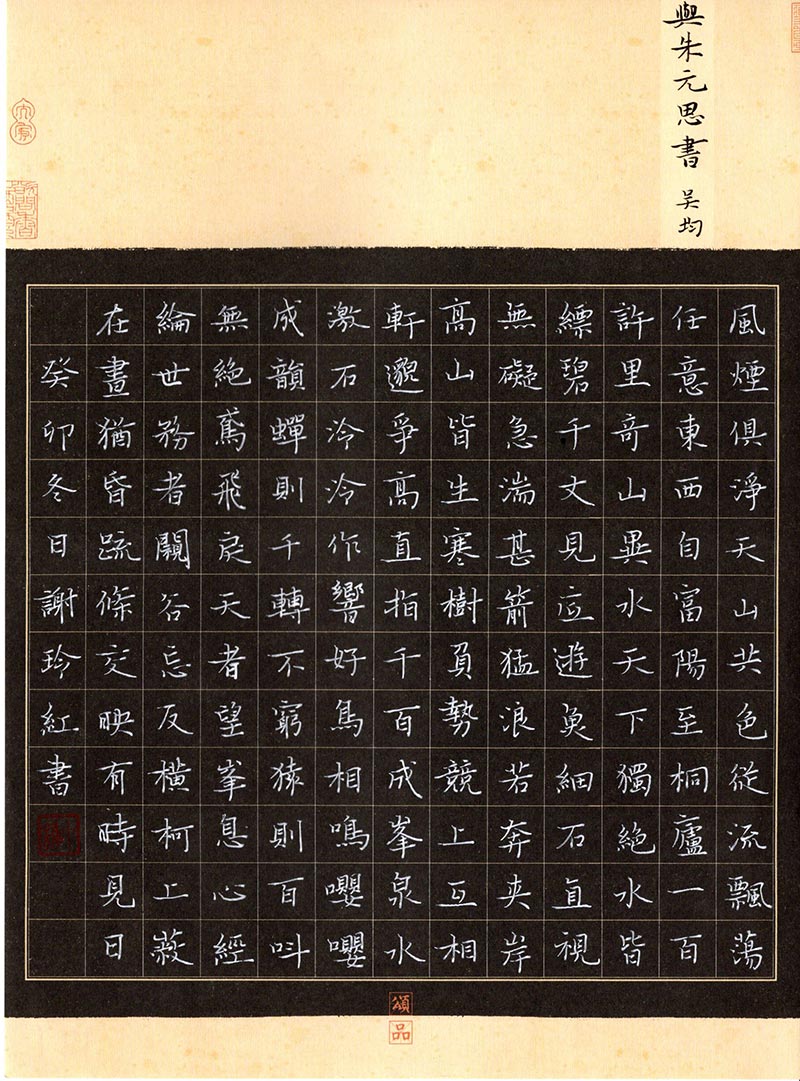 與朱元思書 吴均
風煙俱淨天山共色從流飄蕩
任意東西自富陽至桐廬一百
許里奇山異水天下獨絕水皆
縹碧千丈見底遊魚細石直視
無礙急湍甚箭猛浪若奔夾岸
高山皆生寒樹負勢競上互相
軒邈爭高直指千百成峯泉水
激石冷冷作響好鳥相鳴嚶嚶
成韻蟬則千轉不窮猿則百叫
無絕鳶飛戾天者望峯息心經
綸世務者闚谷忘反橫柯上蔽
在晝猶昏疏條交映有時見日
癸卯冬日謝玲紅書
頌
品